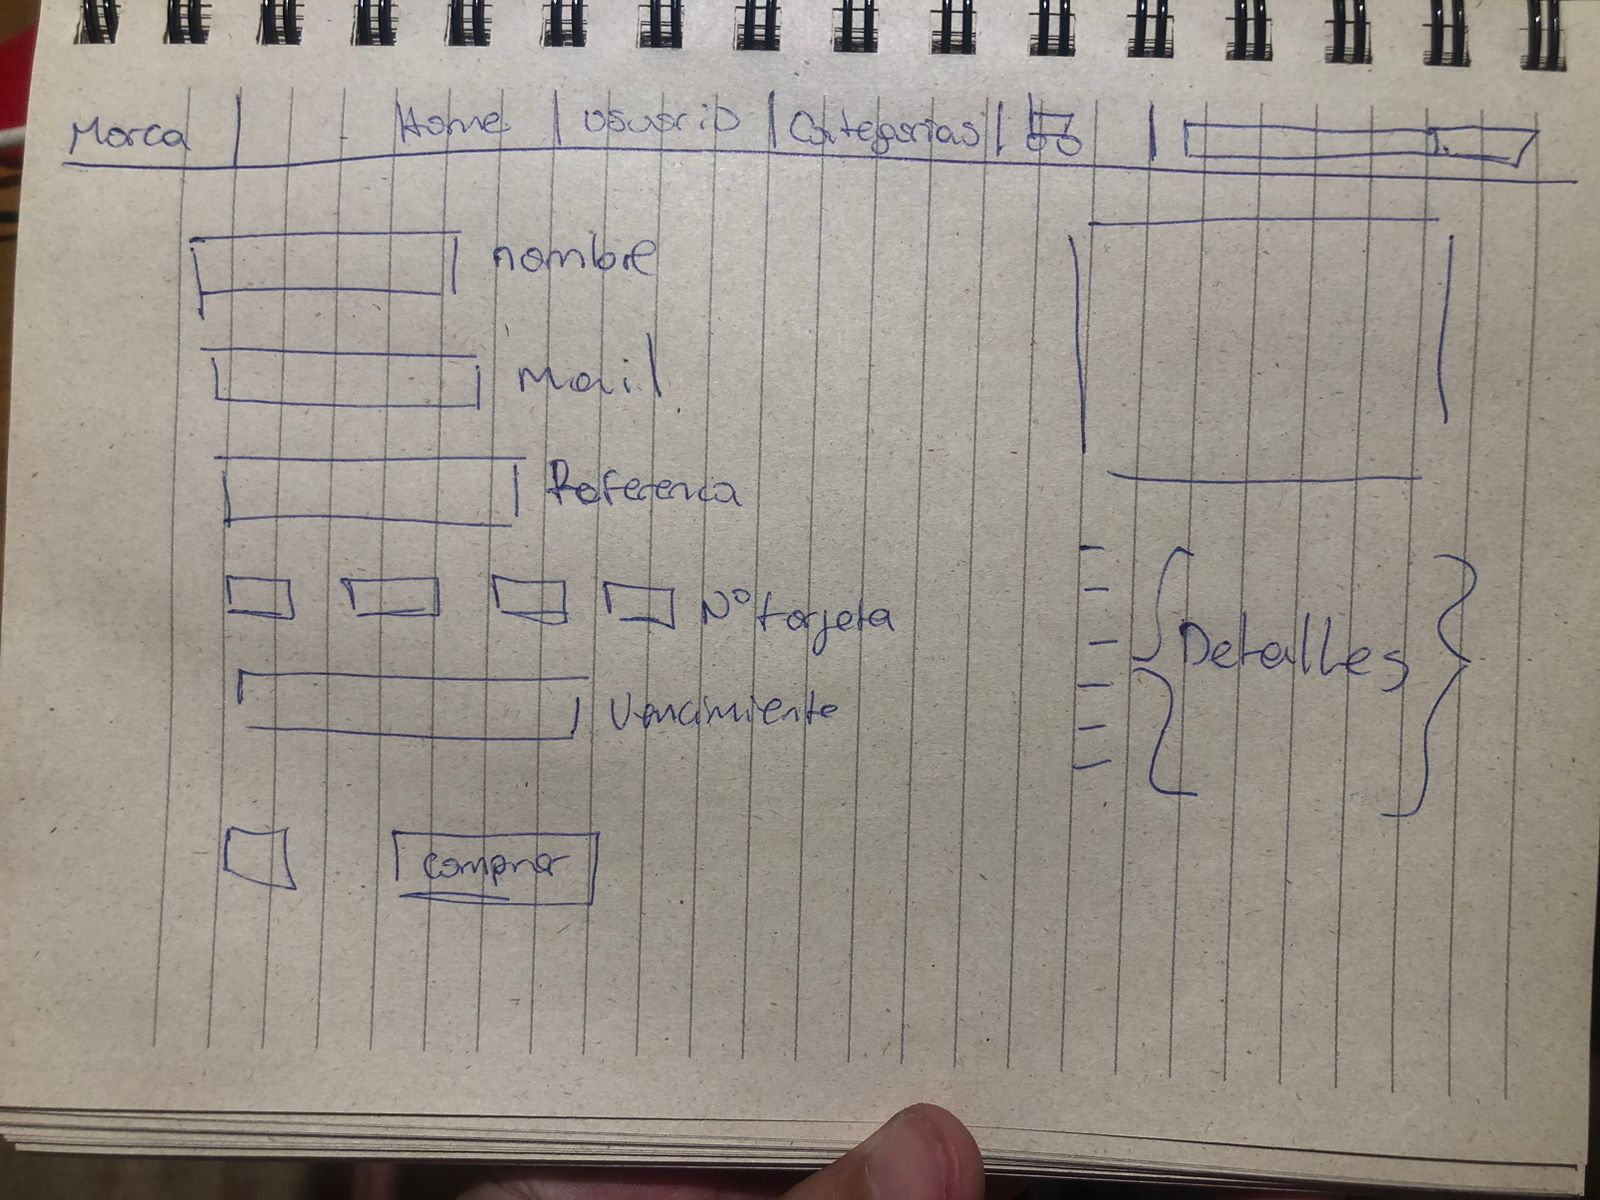 Marca Home Usuario Categorias
nombre
Mail
Referenca
N° tarjeta
Vencimiento
Detalles
comprar